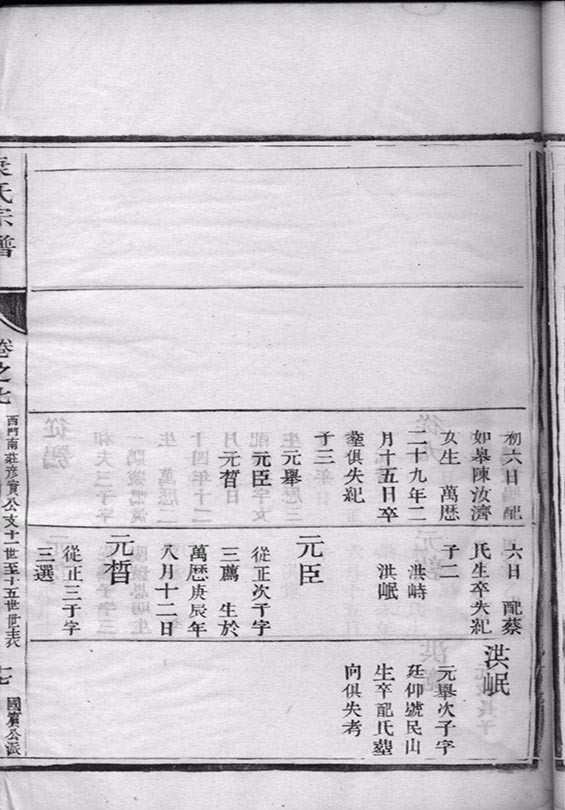 初六日配
如皋陳汝濟
女生萬曆
二十九年二
月十五日卒
葬俱失紀
子三
元舉
元臣
元晳
六日配蔡
氏生卒失紀
子二
洪峙
洪岷
元臣
從正次子字
三薦生於
萬曆庚辰年
八月十二日
元晳
從正三子字
三選
洪岷
元舉次子字
廷仰號民山
生卒配氏塟
向俱失考
袁氏宗譜
卷之七
西門南莊彦實公支十一世至十五世世表
七
國賓公派